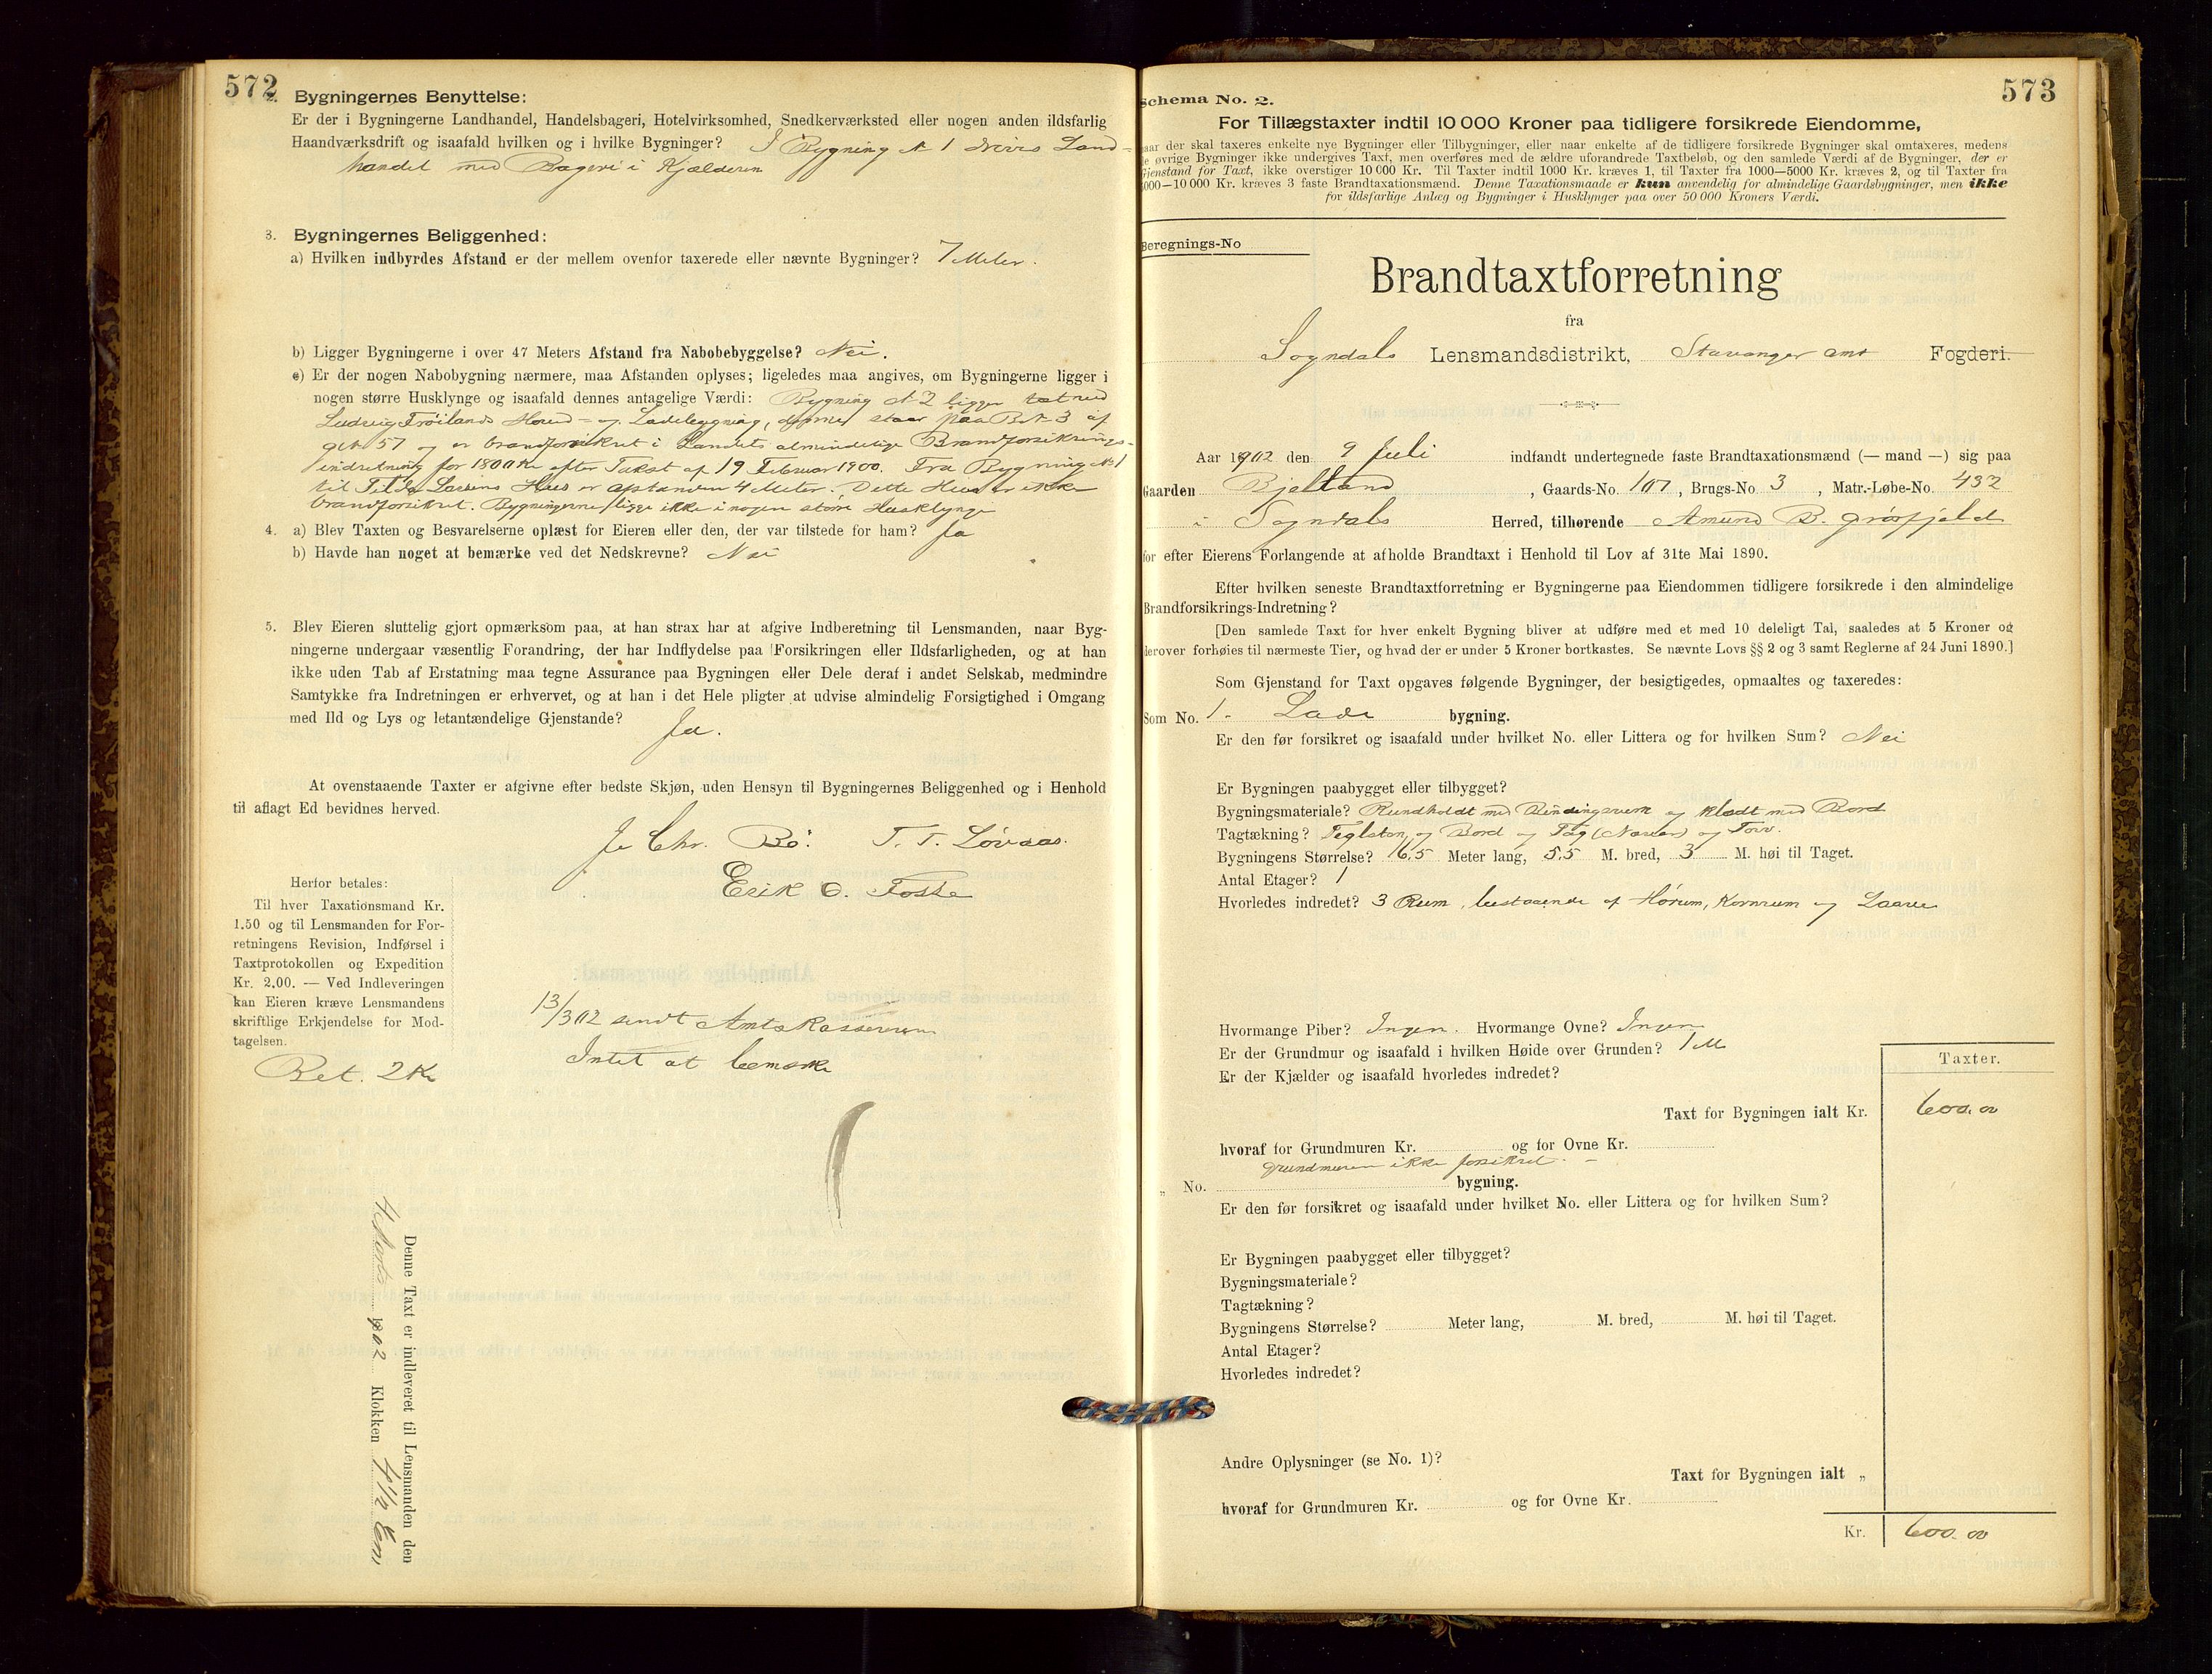 572
2. Bygningernes Benyttelse:
Er der i Bygningerne Landhandel, Handelsbageri, Hotelvirksomhed, Snedkerværksted eller nogen anden ildsfarlig
Haandværksdrift og isaafald hvilken og i hvilke Bygninger? I Bygning No 1 drives Land-
handel med Bageri i Kjælderen
3. Bygningernes Beliggenhed:
a) Hvilken indbyrdes Afstand er der mellem ovenfor taxerede eller nævnte Bygninger? 7 Meter.
b) Ligger Bygningerne i over 47 Meters Afstand fra Nabobebyggelse? Nei.
c) Er der nogen Nabobygning nærmere, maa Afstanden oplyses; ligeledes maa angives, om Bygningerne ligger i
nogen større Husklynge og isaafald dennes antagelige Værdi: Bygning No 2 ligger tæt ved
Ludvig Trøilands Hoved- og Ladebygning, denne staar paa B.No 3 af
g.No 57 og er brandforsikret i Landets almindelige Brandforsikrings-
indretning for 1800 Kr efter Takst af 19 Februar 1900. Fra Bygning No 1
til Tilda Larsens Hus er afstanden 4 Meter. Dette Hus er ikke
brandforsikret. Bygningerne ligge ikke i nogen større Husklynge
4. a) Blev Taxten og Besvarelserne oplæst for Eieren eller den, der var tilstede for ham? Ja
b) Havde han noget at bemærke ved det Nedskrevne? Nei
5. Blev Eieren sluttelig gjort opmærksom paa, at han strax har at afgive Indberetning til Lensmanden, naar Byg-
ningerne undergaar væsentlig Forandring, der har Indflydelse paa Forsikringen eller Ildsfarligheden, og at han
ikke uden Tab af Erstatning maa tegne Assurance paa Bygningen eller Dele deraf i andet Selskab, medmindre
Samtykke fra Indretningen er erhvervet, og at han i det Hele pligter at udvise almindelig Forsigtighed i Omgang
med Ild og Lys og letantændelige Gjenstande? Ja.
At ovenstaaende Taxter er afgivne efter bedste Skjøn, uden Hensyn til Bygningernes Beliggenhed og i Henhold
til aflagt Ed bevidnes herved.
J. Chr. Bø. T. T. Løvaas.
Erik O. Fosse
Herfor betales:
Til hver Taxationsmand Kr.
1.50 og til Lensmanden for For-
retningens Revision, Indførsel i
Taxtprotokollen og Expedition
Kr. 2.00. — Ved Indleveringen
kan Eieren kræve Lensmandens
skriftlige Erkjendelse for Mod-
tagelsen.
Bet. 2 Kr
13/3 02 sendt Amtskassereren
Intet at bemærke
Denne Taxt er indleveret til Lensmanden den
4 Marts 1902 Klokken 4 1/2 Em
573
Schema No. 2.
For Tillægstaxter indtil 10 000 Kroner paa tidligere forsikrede Eiendomme,
naar der skal taxeres enkelte nye Bygninger eller Tilbygninger, eller naar enkelte af de tidligere forsikrede Bygninger skal omtaxeres, medens
de øvrige Bygninger ikke undergives Taxt, men overføres med de ældre uforandrede Taxtbeløb, og den samlede Værdi af de Bygninger, der er
Gjenstand for Taxt, ikke overstiger 10 000 Kr. Til Taxter indtil 1000 Kr. kræves 1, til Taxter fra 1000—5000 Kr. kræves 2, og til Taxter fra
5000—10 000 Kr. kræves 3 faste Brandtaxationsmænd. Denne Taxationsmaade er kun anvendelig for almindelige Gaardsbygninger, men ikke
for ildsfarlige Anlæg og Bygninger i Husklynger paa over 50 000 Kroners Værdi.
Beregnings-No
Brandtaxtforretning
fra
Sogndals Lensmandsdistrikt, Stavanger amt Fogderi.
Aar 1902 den 9 Juli indfandt undertegnede faste Brandtaxationsmænd (— mand —) sig paa
Gaarden Bjelland, Gaards-No. 107, Brugs-No. 3, Matr.-Løbe-No. 432
i Sogndals Herred, tilhørende Amund B. Grøsfjeld
for efter Eierens Forlangende at afholde Brandtaxt i Henhold til Lov af 31te Mai 1890.
Efter hvilken seneste Brandtaxtforretning er Bygningerne paa Eiendommen tidligere forsikrede i den almindelige
Brandforsikrings-Indretning?
[Den samlede Taxt for hver enkelt Bygning bliver at udføre med et med 10 deleligt Tal, saaledes at 5 Kroner og
derover forhøies til nærmeste Tier, og hvad der er under 5 Kroner bortkastes. Se nævnte Lovs §§ 2 og 3 samt Reglerne af 24 Juni 1890.]
Som Gjenstand for Taxt opgaves følgende Bygninger, der besigtigedes, opmaaltes og taxeredes:
Som No. 1. Lade bygning.
Er den før forsikret og isaafald under hvilket No. eller Littera og for hvilken Sum? Nei
Er Bygningen paabygget eller tilbygget?
Bygningsmateriale? Rundholdt med Bindingsverk og klædt med Bord
Tagtækning? Teglsten, og Bord og Tag (Næver) og Torv.
Bygningens Størrelse? 16,5 Meter lang, 5,5 M. bred, 3 M. høi til Taget.
Antal Etager? 1
Hvorledes indredet? 3 Rum, bestaaende af Hørum, Kornrum og Laave
Hvormange Piber? Ingen. Hvormange Ovne? Ingen
Er der Grundmur og isaafald i hvilken Høide over Grunden? 1 M
Er der Kjælder og isaafald hvorledes indredet?
Taxter.
Taxt for Bygningen ialt Kr. 600.00
hvoraf for Grundmuren Kr. og for Ovne Kr.
Grundmuren ikke forsikret. —
„ No. bygning.
Er den før forsikret og isaafald under hvilket No. eller Littera og for hvilken Sum?
Er Bygningen paabygget eller tilbygget?
Bygningsmateriale?
Tagtækning?
Bygningens Størrelse? Meter lang, M. bred, M. høi til Taget.
Antal Etager?
Hvorledes indredet?
Andre Oplysninger (se No. 1)?
Taxt for Bygningen ialt „
hvoraf for Grundmuren Kr. og for Ovne Kr.
Kr. 600.00